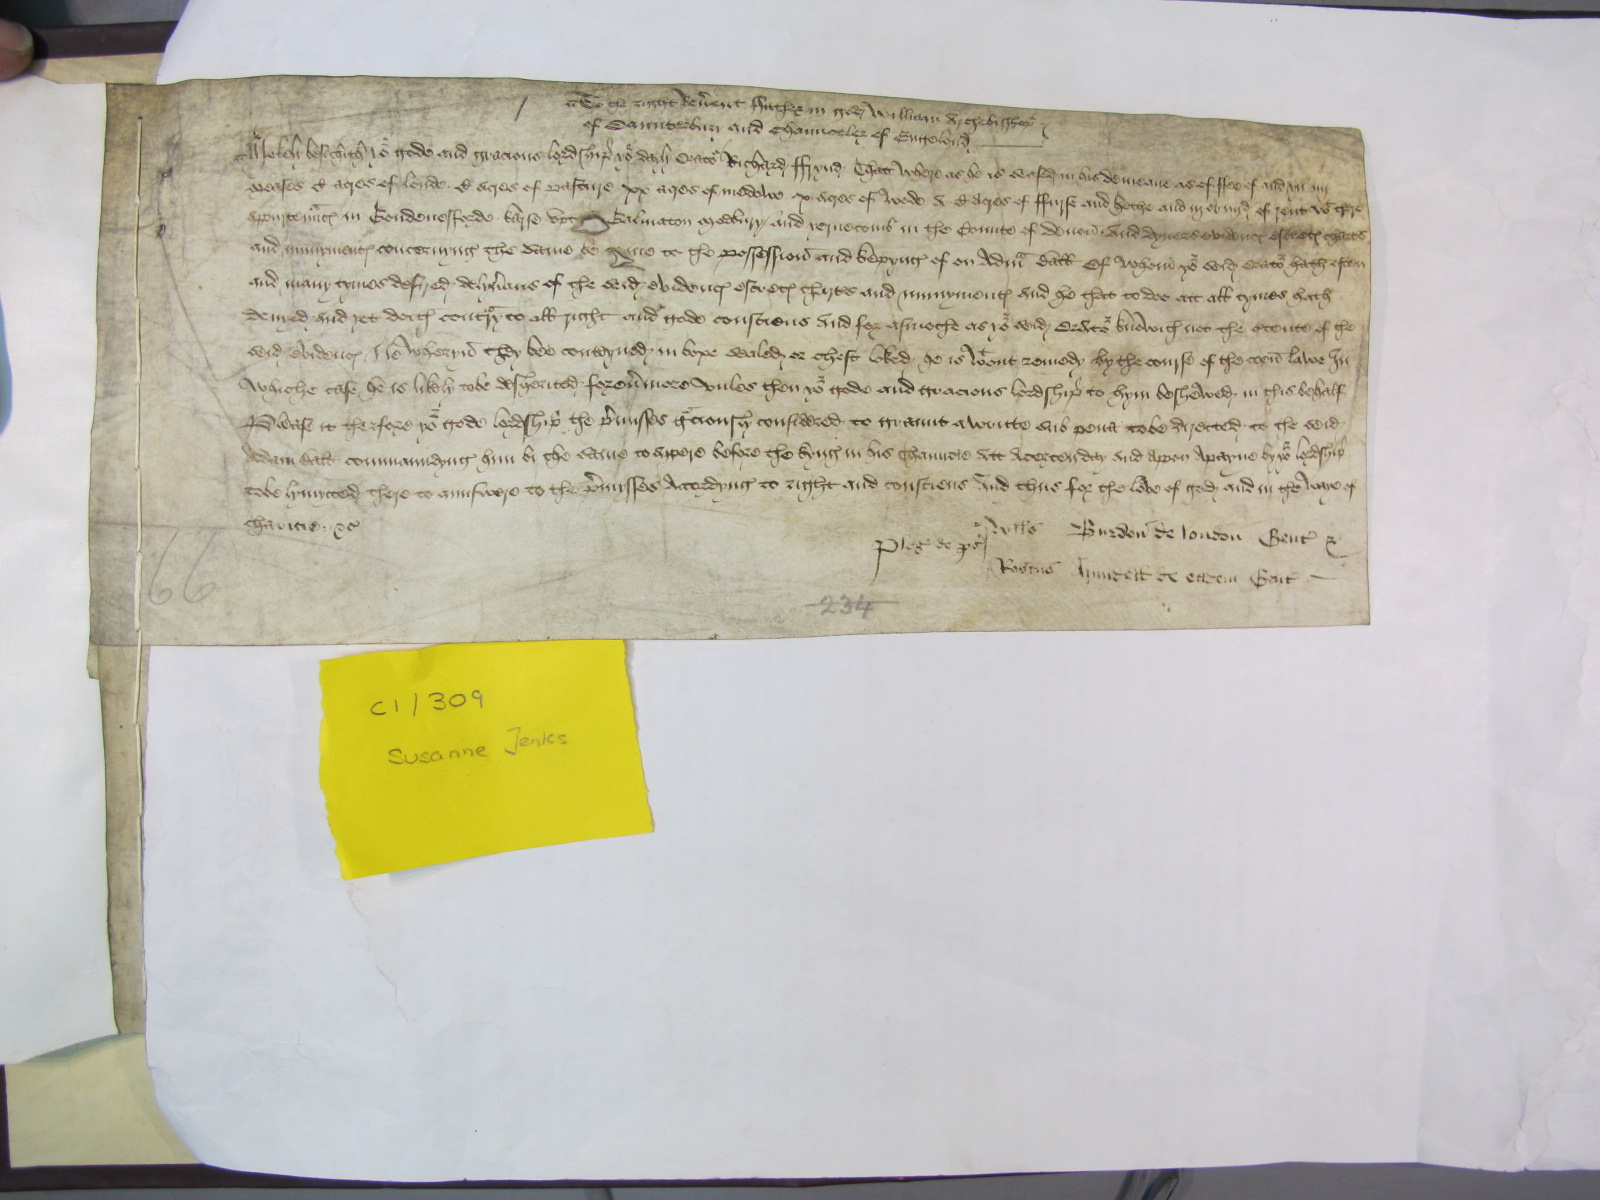 To the right Revent ffather in god William Archebisshop
of Caunterbury and Chaunceler of Engelond
Mekely besechith yor gode and gracious lordship yor dayly Orator Richard ffrynd That where as he is seased in his demeane as of ffee of and in iiij
meases C acres of londe C acres of pasture xx acres of medowe x acres of wode & C acres of ffurse and hethe and of rent wt there
apurtenance in in the Counte of Devon And dyvers evidence escrete chartes
and munymente concernyng the same be to the possession and kepyng of on Adm Of whom yor seid Orator hath often
and many tymes desyred delyverans of the seid evidence escrete chartes and munymente And he that to doo att all tymes hath
denyed And yet doith contrary to all right and gode consciens And for asmoche as yor seid Orator knowith not the certente of the
seid evidence Ne wheryn they bee conteyned in boxe sealed or chest loked he is wtout remedy by the course of the comen lawe In
whiche case he is likly tobe disherited for evermore unles then yor gode and gracious lordship to hym be shewed in this behalf
Please it therfore yor gode lordship the premisses graciously considered to graunt a writte sub pena tobe directed to the seid
Adam commaundyng him bi the same to apere before the kyng in his Chauncre Att A certen day And Apon A payne by yor lordship
tobe lymyted there to aunswere to the premisses Accordyng to right and consciens And this for the love of god and in the waye of
charite &c
Pleg de ps
Wills Burdon de london Gent
Robtus de eadem Gent
66
234
C1/309
Susanne Jenks